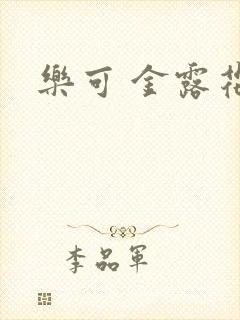 樂可 金露
李品軍